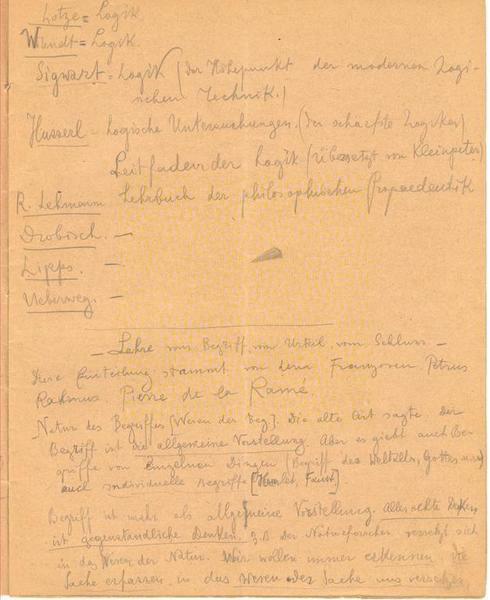 Lotze = Logik
Wundt = Logik.
Sigwart = Logik (Der Höhepunkt der modernen Logi-
schen Technik.)
Husserl = Logische Untersuchungen. (Der schärfste Logiker)
Leitfaden der Logik (Übersetzt von Kleinpeter)
R. Lehmann Lehrbuch der philosophischen Propaedeutik
Drobisch. —
Lipps. —
Ueberweg. —
— Lehre vom Begriff, vom Urteil, vom Schluss —
Diese Einteilung stammt von dem Franzosen Petrus
Ramus. Pierre de la Ramé.
Natur des Begriffes [Wesen der Beg]. Die alte Art sagte. Der
Begriff ist die allgemeine Vorstellung. Aber es giebt auch Be-
griffe von Einzelnen Dingen (Begriff des Weltalls, Gottes
auch individuelle Begriffe [Hamlet, Faust].
Begriff ist mehr als allgemeine Vorstellung. Alles echte Denken
ist gegenständliches Denken, z.B. der Naturforscher, versetzt sich
in das Wesen der Natur. Wir wollen immer erkennen die
Sache erfassen, in das Wesen der Sache uns versetzen,